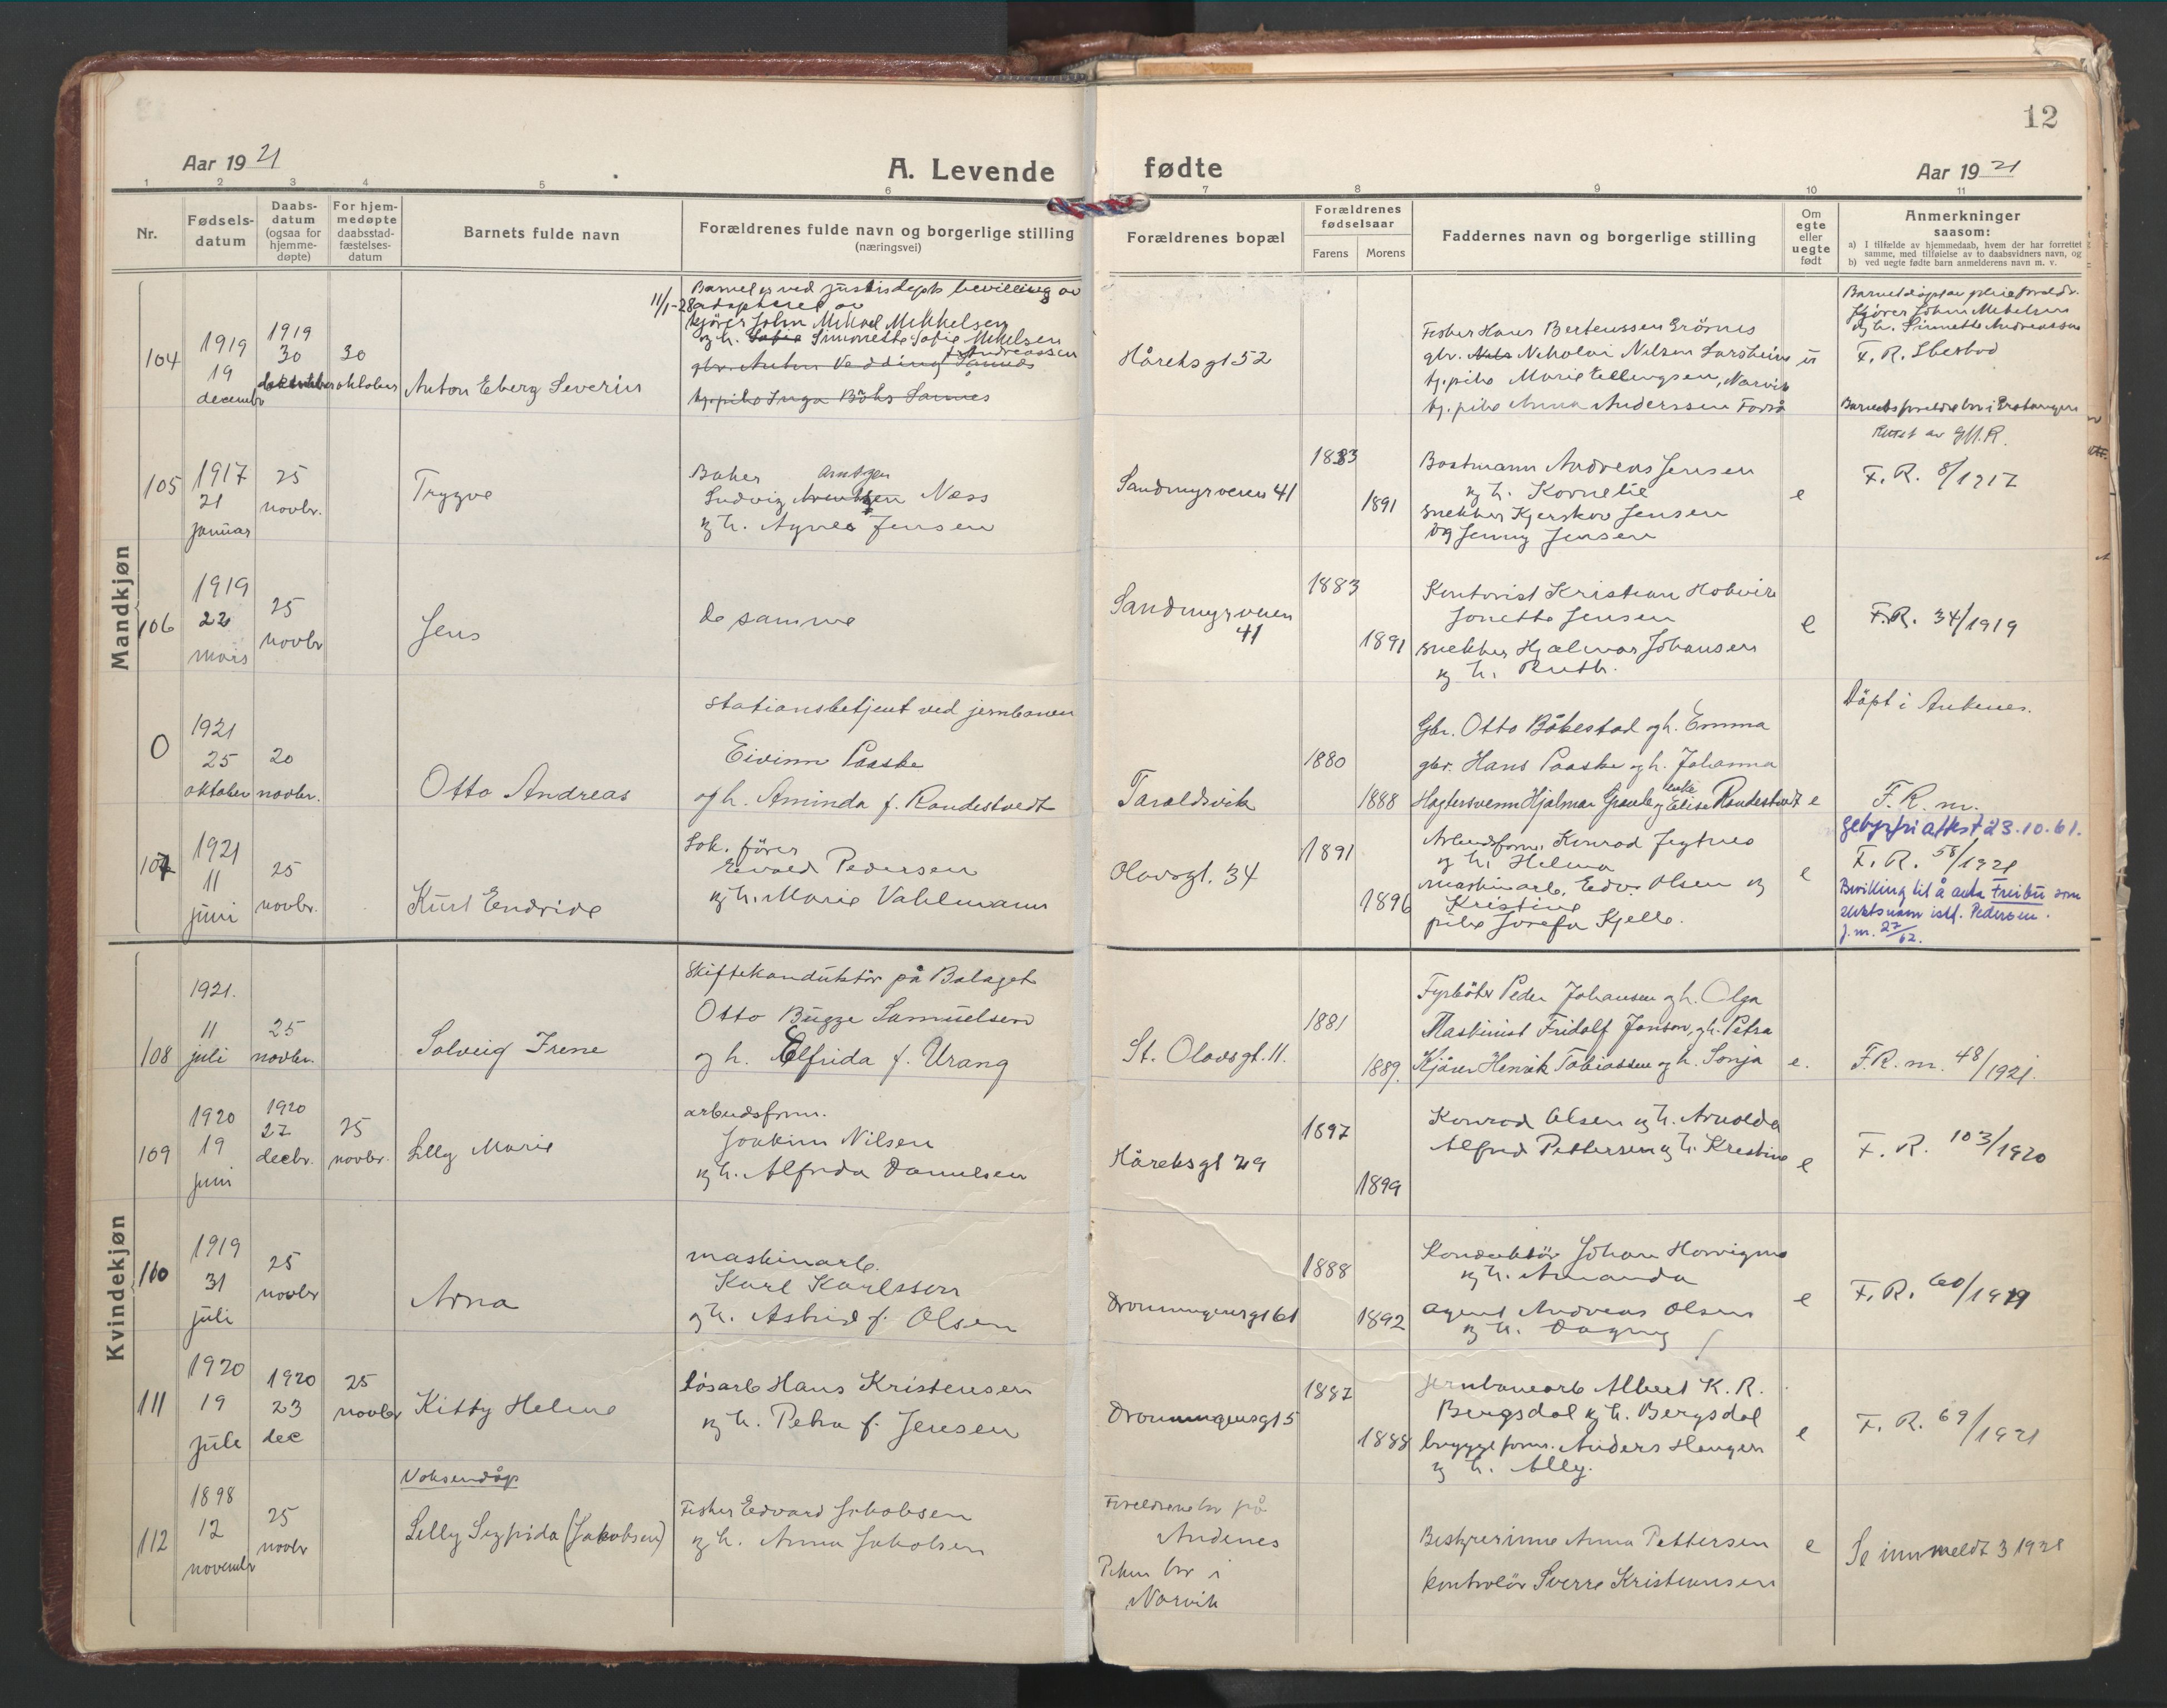 12
Aar 1921
A. Levende fødte
Aar 1921
1 2 3 4 5 6 7 8 9 10 11
Nr.
Fødsels-
datum
Daabs-
datum
(ogsaa for
hjemme-
døpte)
For hjem-
medøpte
daabsstad-
fæstelses-
datum
Barnets fulde navn
Forældrenes fulde navn og borgerlige stilling
(næringsvei)
Forældrenes bopæl
Forældrenes
fødselsaar
Farens
Morens
Faddernes navn og borgerlige stilling
Om
egte
eller
uegte
født
Anmerkninger
saasom:
a) I tilfælde av hjemmedaab, hvem der har forrettet
samme, med tilføielse av to daabsvidners navn, og
b) ved uegte fødte barn anmelderens navn m. v.
Mandkjøn
104
1919
19
decembr
1919
30
30
oktober
Anton Eberg Severin
Barnet er ved justisdepts bevilling av
11/1-28 adopteret av
kjører John Mikael Mikkelsen
og h. Sofie Simonette Sofie Mikelsen
f. Andreassen
gbr. Anton Vedding Sannes
tj.pike Inga Böhs Sannes
Håreksgt 52
Fisker Hans Berteussen Grörnes
gbr. Nils Nikolai Nilsen Sarsheim
tj.pike Marie Ellingsen, Narvik
tj.pike Anna Anderssen Forså
u
Barnet döpt av pleieforeldr.
kjörer John Mikelsen
og h. Simnette Andreassen
F. R. Ibestad
Barnets foreldre bor i Gratangen
105
1917
21
januar
25
novbr.
Trygve
Baker
Arntzen
Ludvig Arentzen Ness
og h. Agnes Jensen
Sandmyrveien 41
1883
1891
Bostmann Andreas Jensen
og h. Kornelie
snekker Kjerskov Jensen
og Jenny Jensen
e
F. R. 8/1917
106
1919
22
mars
25
novbr
Jens
de samme
Sandmyrveien
41
1883
1891
Kontorist Kristian Hokvik
Jonette Jensen
snekker Hjalmar Johansen
og h. Ruth.
e
F.R. 34/1919
0
1921
25
oktober
20
novbr.
Otto Andreas
Stationsbetjent ved jernbanen
Eivinn Paaske
og h. Aminda f. Randestvedt
Taraldsvik
1880
1888
Gbr. Otto Båkestad og h. Emma
gbr. Hans Paaske og h. Johanna
enke
Elise Randestvedt
e
Döpt i Ankenes.
F. R. m.
107
1921
11
juni
25
novbr.
Kurt Endride
Lok. förer
Edvard Pedersen
og h. Marie Vahlmann
Olavsgt. 34
1891
1896
Arbeidsform. Konrad Jegtnes
og h. Helma
maskinarb. Edv. Olsen og
Kristine
pike Josefa Kjelle.
e
gebyrfri attest 23.10.61.
F. R. 58/1921
Bevilling til å anta Freibu som
slektsnavn istf. Pedersen.
j.nr. 27/62.
Kvindekjøn
108
1921.
11
juli
25
novbr.
Solveig Irene
Skiftekonduktör på Bolaget
Otto Bugge Samuelsen
og h. Elfrida f. Urang
St. Olavsgt. 11.
1881
1889.
Fyrböter Peder Johansen og h. Olga
Maskinist Fridolf Jonson, og h. Petra
Kjörer Henrik Tobiassen og h. Sonja
e.
F.R. m. 48/1921.
109
1920
19
juni
1920
27
decbr.
25
novbr.
Lilly Marie
arbeidsform.
Joakim Nilsen
og h. Alfrida Danielsen
Håreksgt 29
1897
1899
Konrad Olsen og h. Arnolda
Alfred Pettersen og h. Kristine
e
F. R. 103/1920
110
1919
31
juli
25
novbr
Arna
maskinarb.
Karl Karlsson
og h. Astrid f. Olsen
Dronningensgt 61
1888
1892
Konduktör Johan Horvigmo
og h. Amanda
agent Andreas Olsen
og h. Dagny
e
F. R. 60/1919
111
1920
19
jule
1920
23
dec
25
novbr
Kitty Helene
Lösarb Hans Kristensen
og h. Petra f. Jensen
Dronningensgt 5
1887
1888
jernbanearb Albert K. R.
Bergsdal og h. Bergsdal
byggeform. Anders Haugen
og h. Ally.
e
F. R. 69/1921
112
1898
12
novembr
25
novbr
Voksendåp
Lilly Sigfrida (Jakobsen)
Fisker Edvard Jakobsen
og h. Anna Jakobsen
Foreldrene bor på
Andenes
Piken bor i
Narvik
Bestyrerinne Anna Pettersen
Kontrolör Sverre Kristiansen
e
Se innmeldt 3 1921